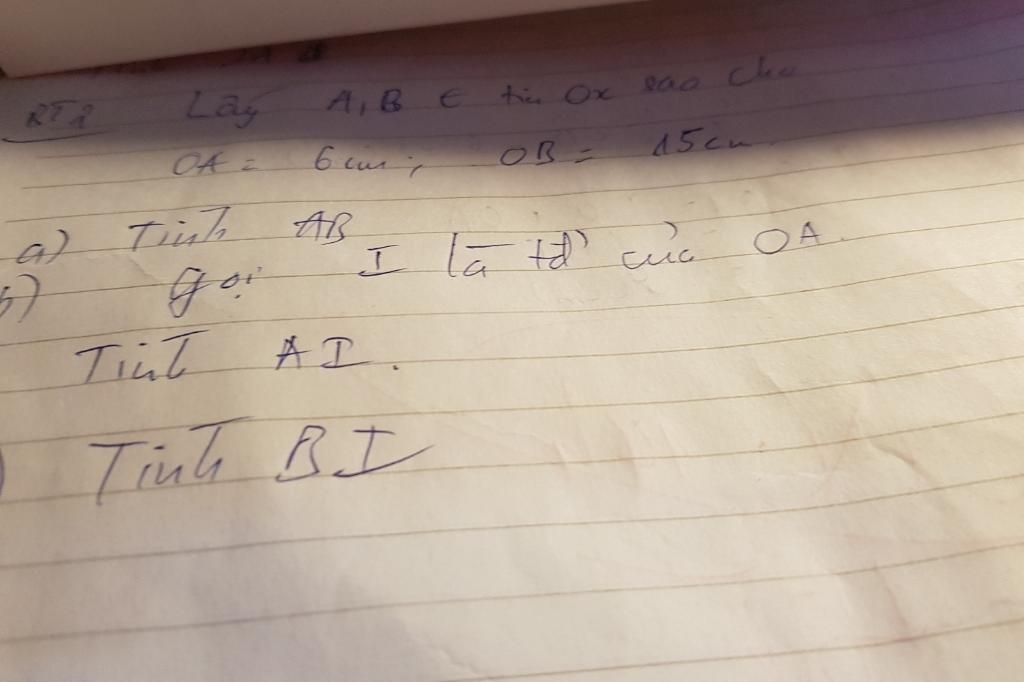 BT2 Lấy A, B ∈ tia Ox sao cho
OA = 6cm; OB = 15cm.
a) Tính AB
b) gọi I là tđ của OA.
Tính AI.
) Tính BI